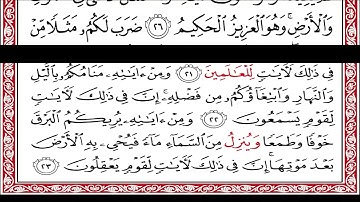 وَالْأَرْضِ ۚ وَهُوَ الْعَزِيزُ الْحَكِيمُ ٢٦ ضَرَبَ لَكُم مَّثَلًا مِّنْ
فِي ذَٰلِكَ لَآيَاتٍ لِّلْعَالِمِينَ ٢١ وَمِنْ آيَاتِهِ مَنَامُكُم بِاللَّيْلِ
وَالنَّهَارِ وَابْتِغَاؤُكُم مِّن فَضْلِهِ ۚ إِنَّ فِي ذَٰلِكَ لَآيَاتٍ
لِّقَوْمٍ يَسْمَعُونَ ٢٢ وَمِنْ آيَاتِهِ يُرِيكُمُ الْبَرْقَ
خَوْفًا وَطَمَعًا وَيُنَزِّلُ مِنَ السَّمَاءِ مَاءً فَيُحْيِي بِهِ الْأَرْضَ
بَعْدَ مَوْتِهَا ۚ إِنَّ فِي ذَٰلِكَ لَآيَاتٍ لِّقَوْمٍ يَعْقِلُونَ ٢٣